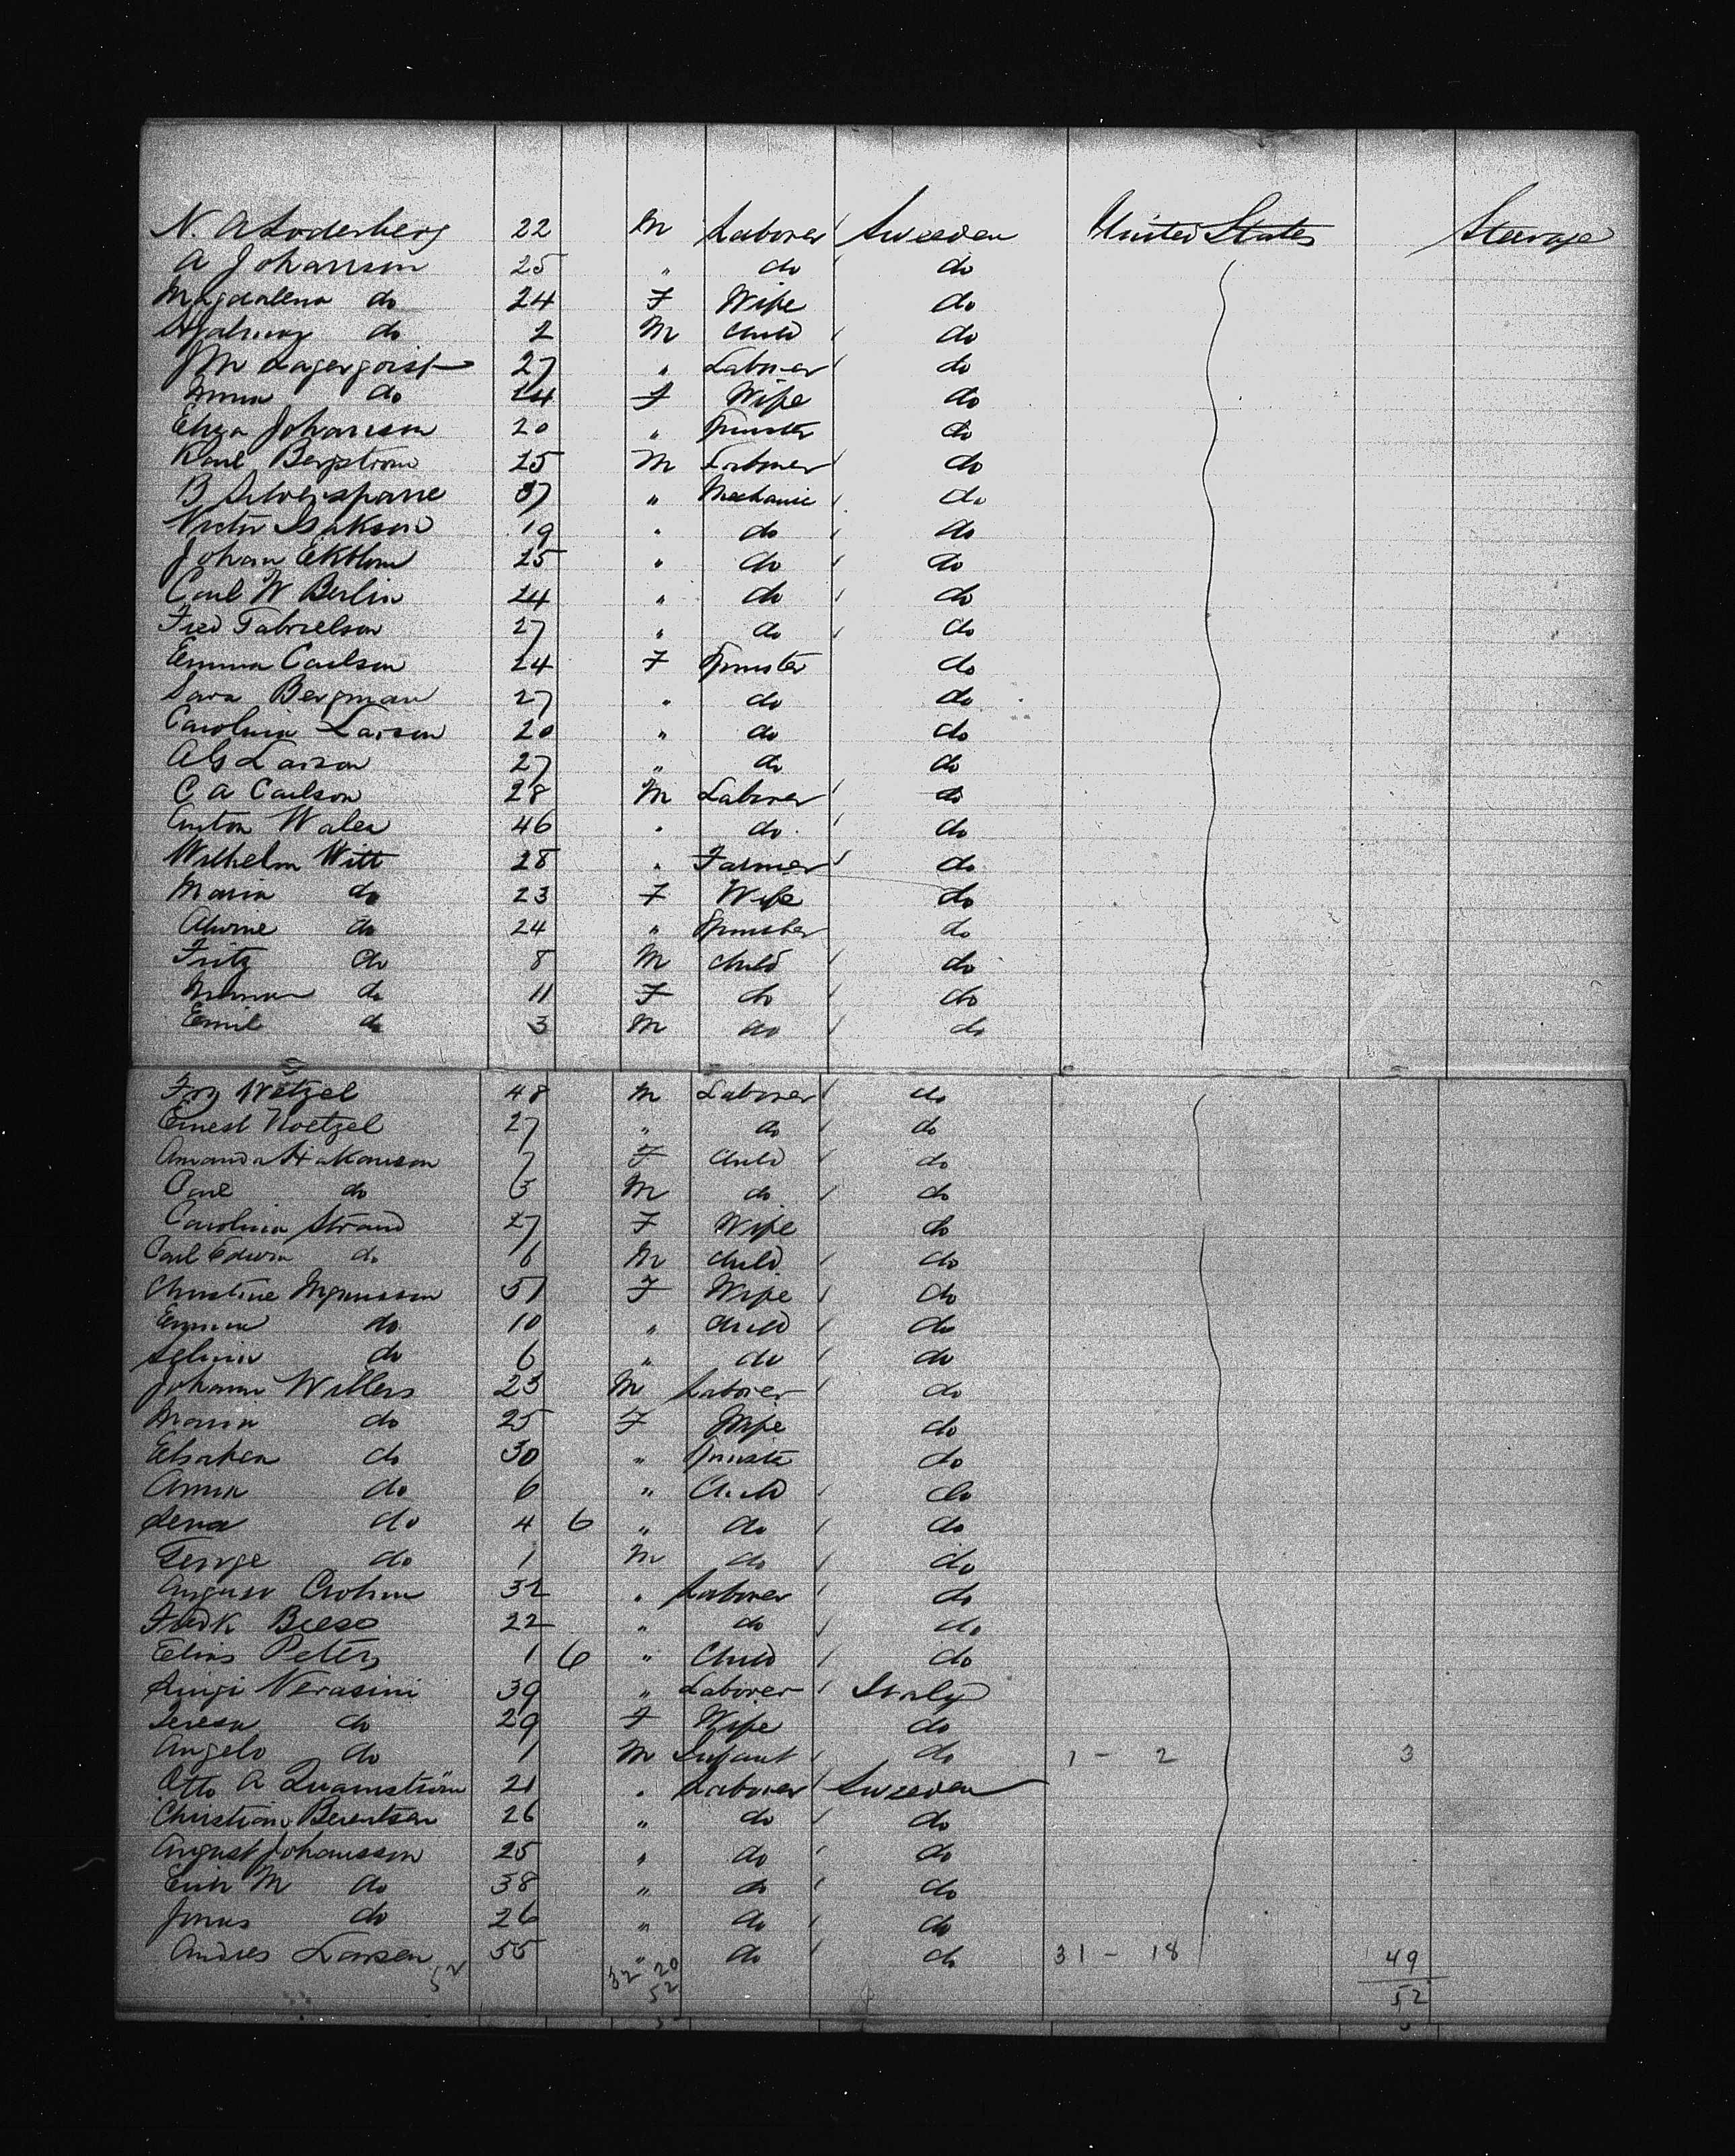 N. A Soderberg 22 M Laborer Sweeden United States Steerage
A Johanson 25 " do do
Magdalena do 24 F Wife do
do 2 M Child do
J M Lagerqvist 27 " Laborer do
do 24 F Wife do
Johanson 20 " Spinster do
Karl Bergstrom 25 M Laborer do
B Silversparre 37 " Mechanic do
Victor Isakson 19 " do do
Johan Ekblom 25 " do do
Carl W Berlin 24 " do do
Fred Gabrielson 27 " do do
Emma Carlson 24 F Spinster do
Sara Bergman 27 " do do
Carolina Larson 20 " do do
A G Larson 27 " do do
C A Carlson 28 M Laborer do
Anton 46 " do do
Wilhelm Witt 28 " Farmer do
Maria do 23 F Wife do
do 24 " Spinster do
Fritz do 8 M Child do
do 11 F do do
Emil do 3 M do do
48 M Laborer do
Ernest Noetzel 27 " do do
Amanda Hakanson 7 F Child do
Carl do M do do
Carolina Strand 27 F Wife do
Carl Edwin do 6 M Child do
Christine Magnusson 51 F Wife do
Emma do 10 " Child do
Selma do 6 " do do
Johann Willers 23 M Laborer do
Maria do 25 F Wife do
do 30 " Spinster do
Anna do 6 " Child do
Lena do 4 6 " do do
George do 1 M do do
August 32 " Laborer do
Fredk 22 " do do
Elias Peters 1 6 " Child do
Luigi Verasini 39 " Laborer Italy
Teresa do 29 F Wife do
Angelo do 1 M Infant do 1 - 2 3
Otto A Quarnström 21 " Laborer Sweeden
Christian Berentsen 26 " do do
August Johansson 25 " do do
Erik M do 38 " do do
Jonas do 26 " do do
Andres Larsen 55 " do do 31 - 18 49
52 32 20 52
52